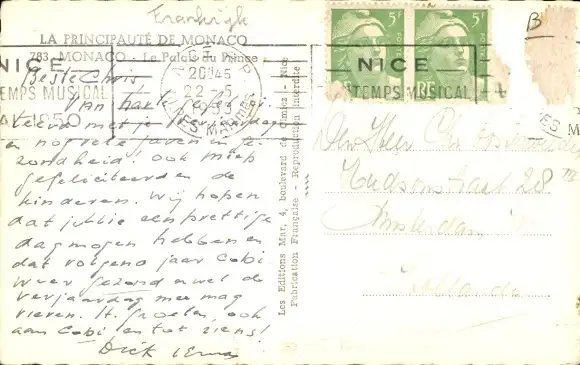 Frankrijk
LA PRINCIPAUTÉ DE MONACO
783 - MONACO - Le Palais du Prince
Beste Chris
Van harte gefelici-
teerd met je verjaardag
en nog vele jaren in ge-
zondheid! Ook Miep
gefeliciteerd en de
kinderen. Wij hopen
dat jullie een prettige
dag mogen hebben en
dat volgend jaar Cobi
weer gezond en wel de
verjaardag mee mag
vieren. H. groeten, ook
aan Cobi en tot ziens!
Dick
Les Editions Mar, 4, boulevard de Cimiez - Nice
Fabrication Française - Reproduction interdite
NICE
TEMPS MUSICAL
1950
20H45
22-5
ALPES MARITIMES
5F
POSTES
RF
5F
POSTES
NICE
TEMPS MUSICAL
B
Den Heer
Hudsonstraat 28
Amsterdam
Hollande